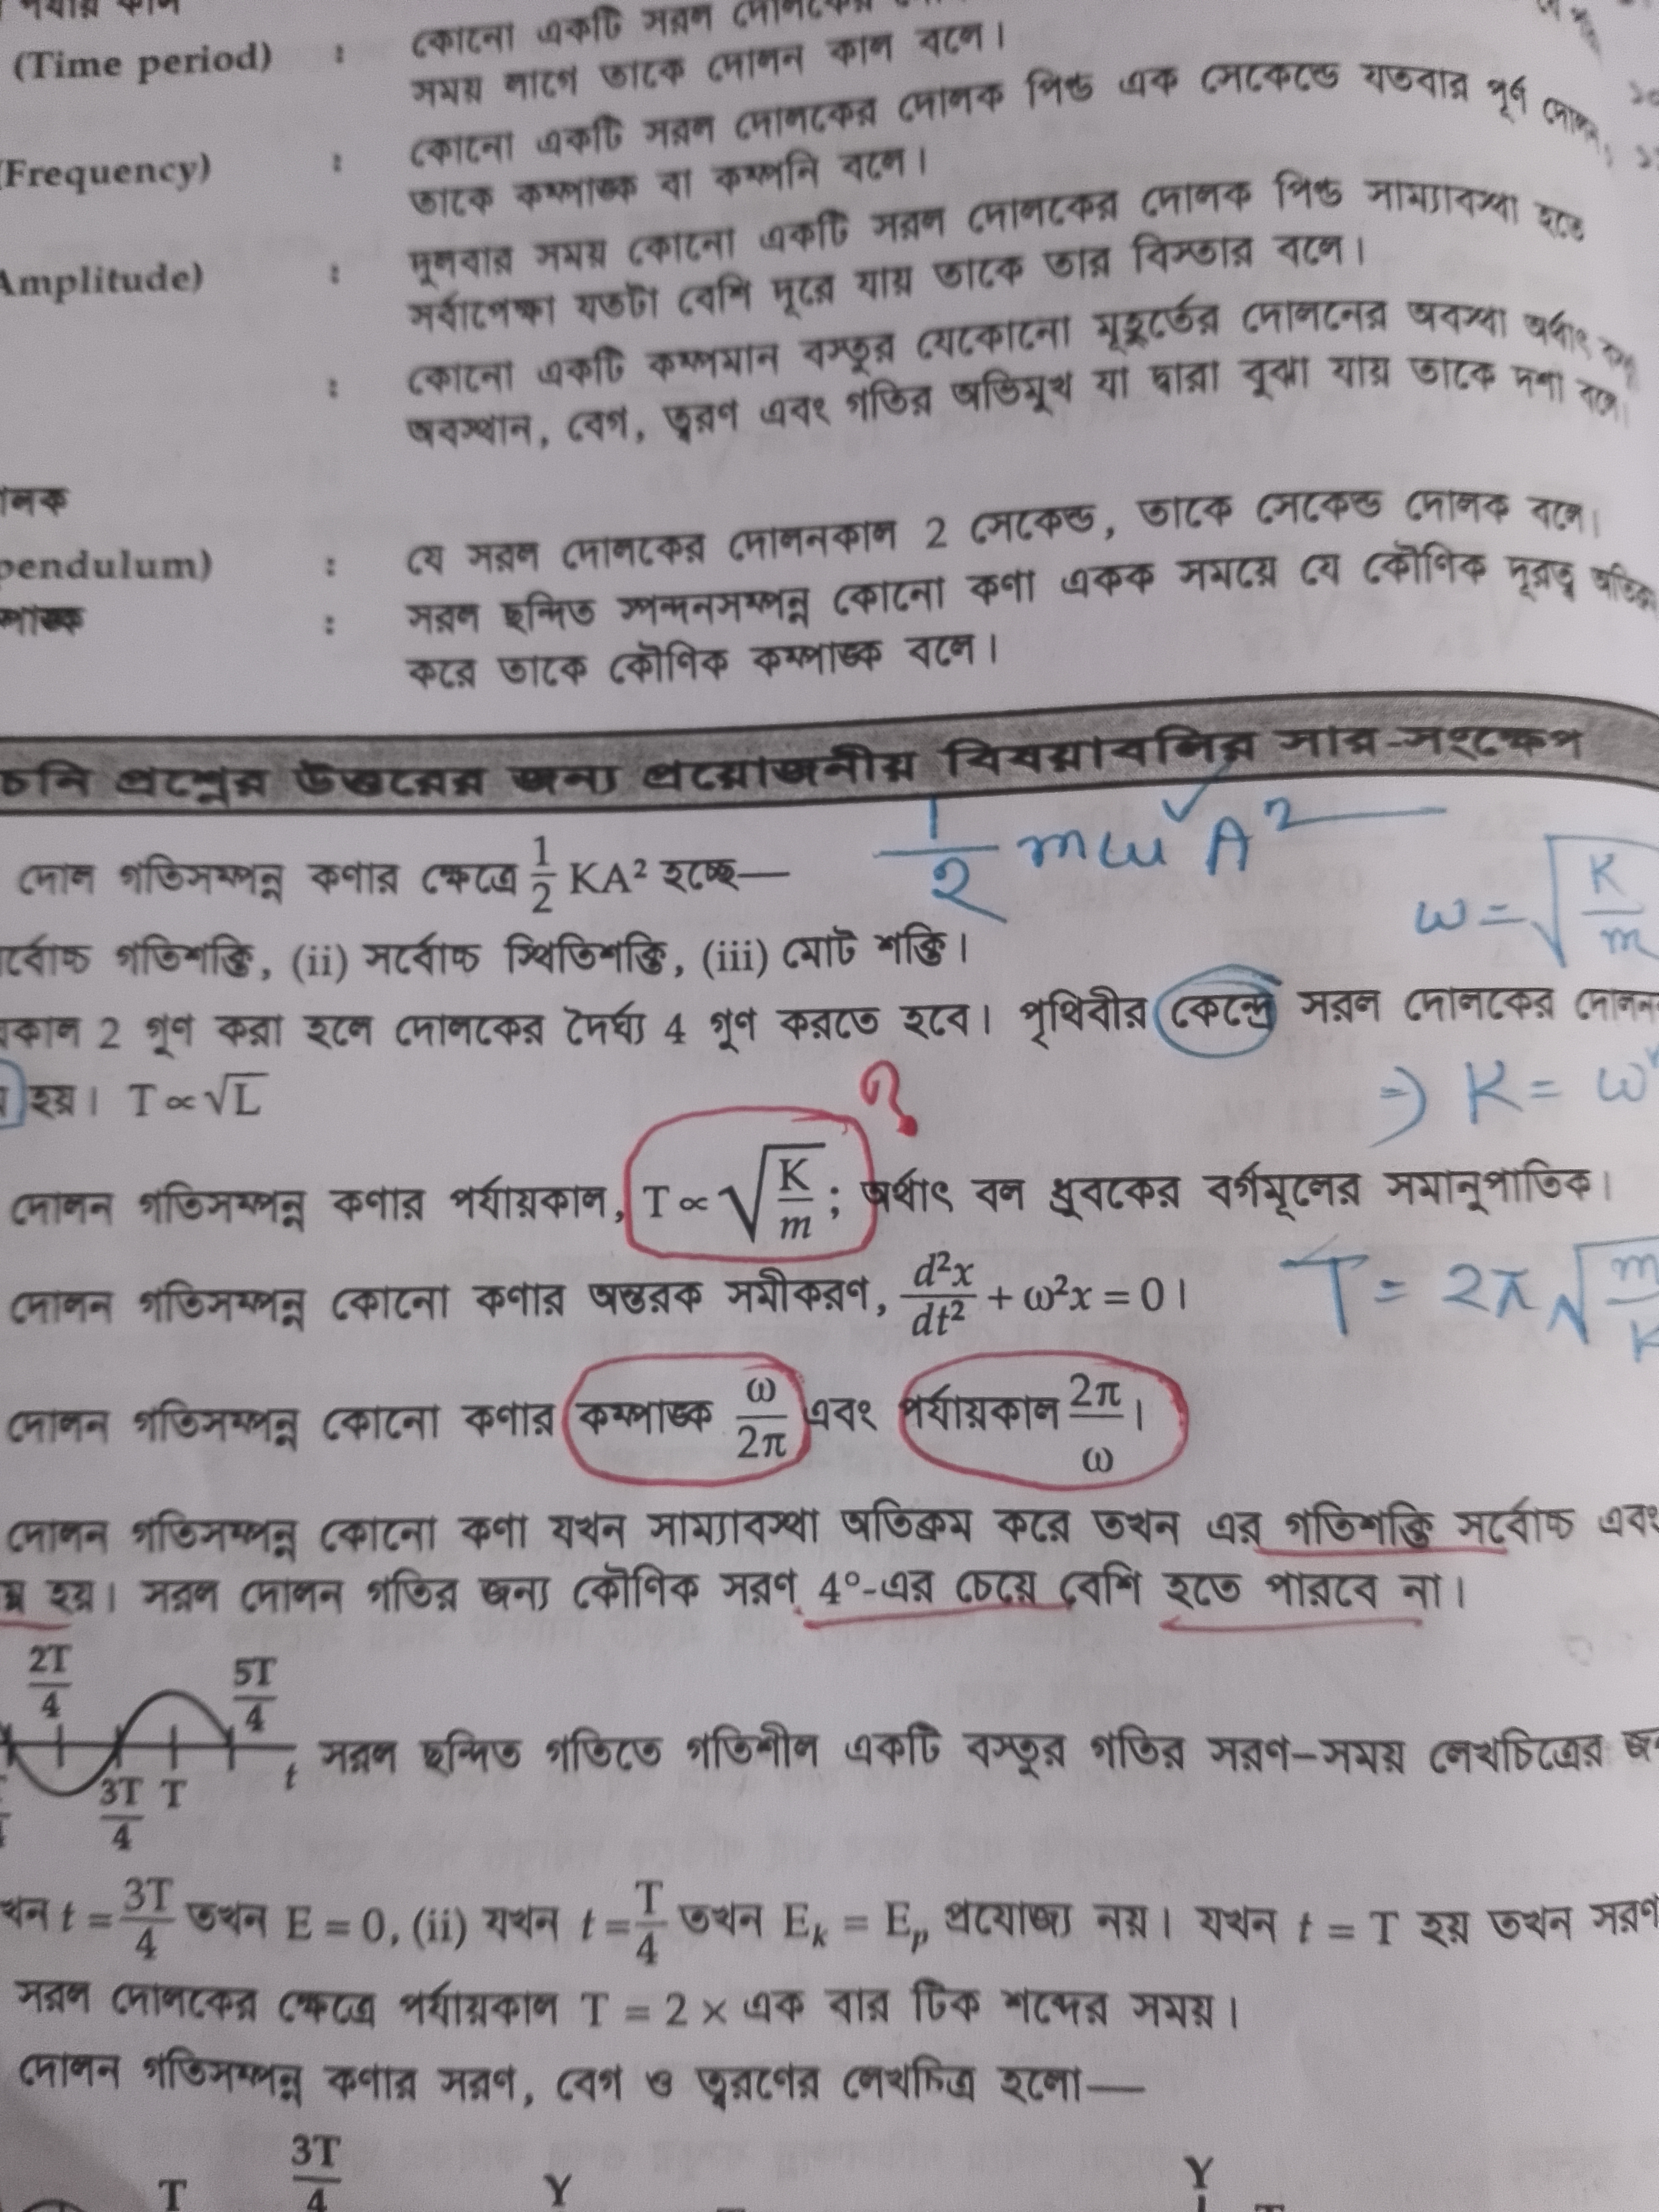 (Time period) : কোনো একটি সরল
সময় লাগে তাকে দোলন কাল বলে।
(Frequency) : কোনো একটি সরল দোলকের দোলক পিন্ড এক সেকেন্ডে যতবার পূর্ণ দোলন
তাকে কম্পাঙ্ক বা কম্পনি বলে।
Amplitude) : দুলবার সময় কোনো একটি সরল দোলকের দোলক পিন্ড সাম্যাবস্থা হতে
সর্বাপেক্ষা যতটা বেশি দূরে যায় তাকে তার বিস্তার বলে।
: কোনো একটি কম্পমান বস্তুর যেকোনো মুহূর্তের দোলনের অবস্থা অর্থাৎ
অবস্থান, বেগ, ত্বরণ এবং গতির অভিমুখ যা দ্বারা বুঝা যায় তাকে দশা বলে।
লক
pendulum) : যে সরল দোলকের দোলনকাল 2 সেকেন্ড, তাকে সেকেন্ড দোলক বলে।
ম্পাঙ্ক : সরল ছন্দিত স্পন্দনসম্পন্ন কোনো কণা একক সময়ে যে কৌণিক দূরত্ব অতিক্রম
করে তাকে কৌণিক কম্পাঙ্ক বলে।
চনি প্রশ্নের উত্তরের জন্য প্রয়োজনীয় বিষয়াবলির সার-সংক্ষেপ
দোল গতিসম্পন্ন কণার ক্ষেত্রে 1/2 KA² হচ্ছে— 1/2 mω² A²
র্বোচ্চ গতিশক্তি, (ii) সর্বোচ্চ স্থিতিশক্তি, (iii) মোট শক্তি। ω = √K/m
কাল 2 গুণ করা হলে দোলকের দৈর্ঘ্য 4 গুণ করতে হবে। পৃথিবীর কেন্দ্রে সরল দোলকের দোলন
হয়। T ∝ √L ? ⇒ K = ω²
দোলন গতিসম্পন্ন কণার পর্যায়কাল, T ∝ √K/m ; অর্থাৎ বল ধ্রুবকের বর্গমূলের সমানুপাতিক।
দোলন গতিসম্পন্ন কোনো কণার অন্তরক সমীকরণ, d²x/dt² + ω²x = 0। T = 2π√m/K
দোলন গতিসম্পন্ন কোনো কণার কম্পাঙ্ক ω/2π এবং পর্যায়কাল 2π/ω।
দোলন গতিসম্পন্ন কোনো কণা যখন সাম্যাবস্থা অতিক্রম করে তখন এর গতিশক্তি সর্বোচ্চ এবং
ম্ন হয়। সরল দোলন গতির জন্য কৌণিক সরণ 4°-এর চেয়ে বেশি হতে পারবে না।
2T/4 5T/4
3T/4 T t সরল ছন্দিত গতিতে গতিশীল একটি বস্তুর গতির সরণ-সময় লেখচিত্রের জ
খন t = 3T/4 তখন E = 0, (ii) যখন t = T/4 তখন Eₖ = Eₚ প্রযোজ্য নয়। যখন t = T হয় তখন সরণ
সরল দোলকের ক্ষেত্রে পর্যায়কাল T = 2 × এক বার টিক শব্দের সময়।
দোলন গতিসম্পন্ন কণার সরণ, বেগ ও ত্বরণের লেখচিত্র হলো—
T 3T/4 Y Y